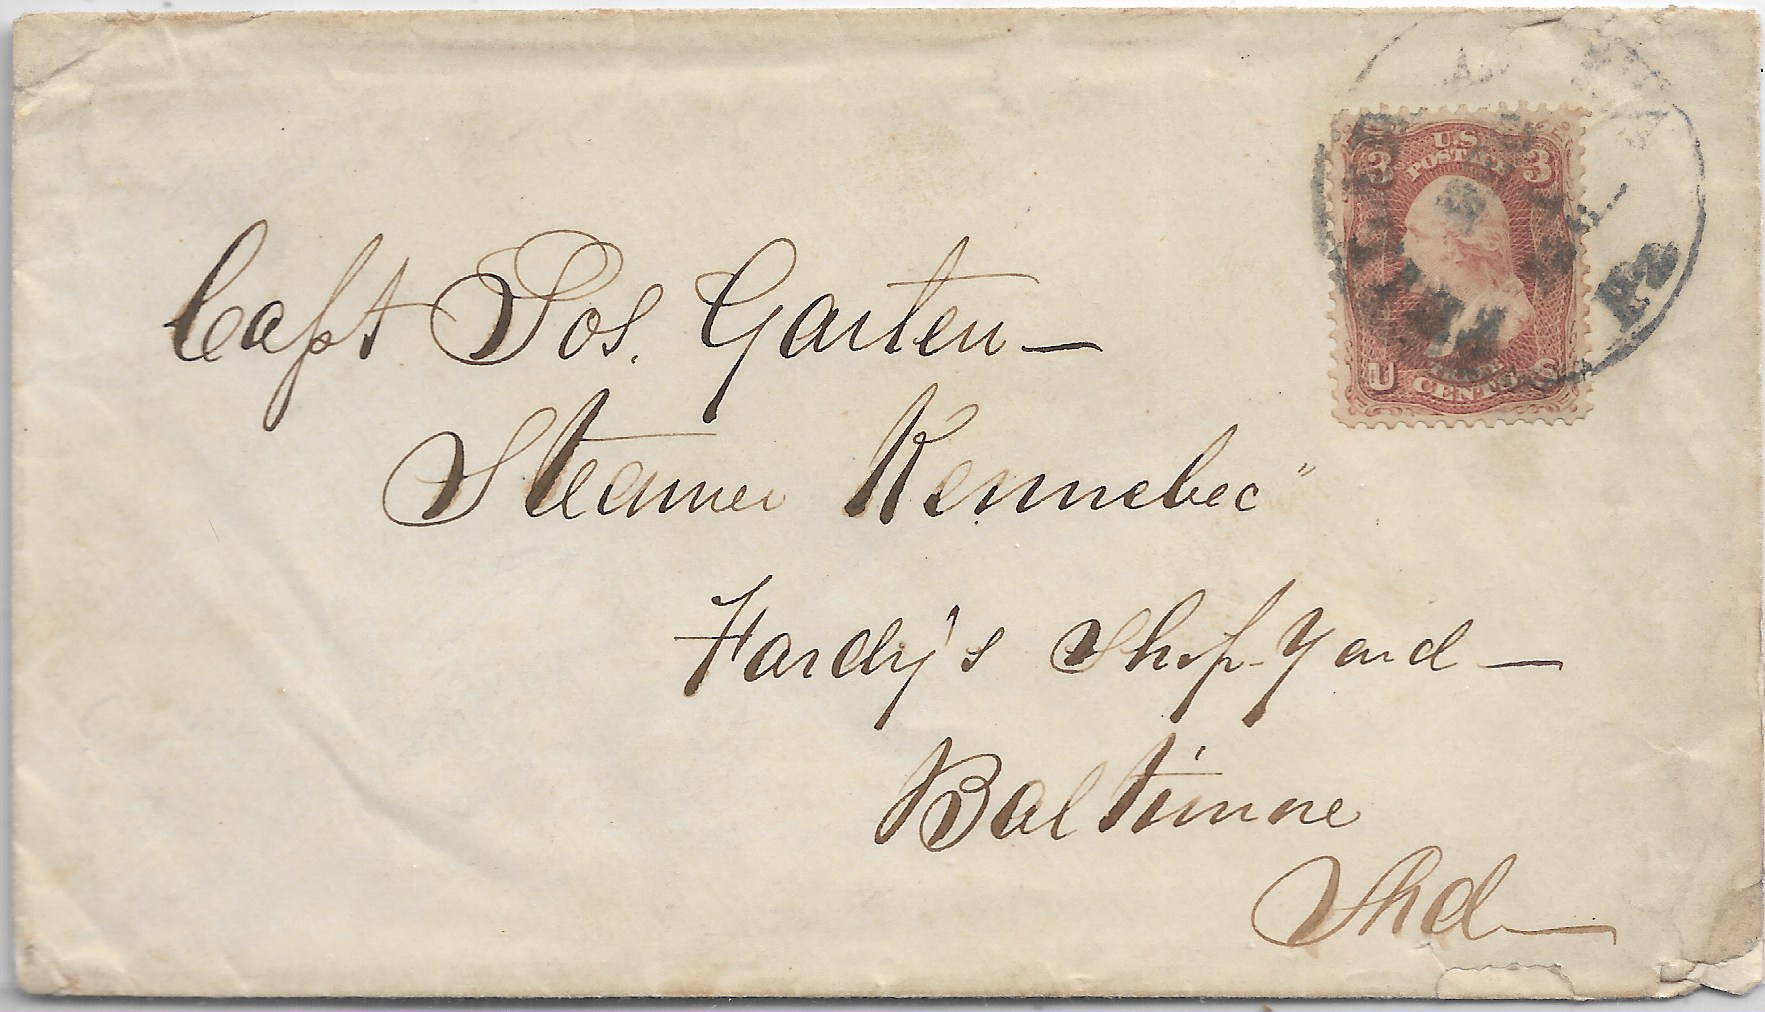 Capt Jos. Garten —
Steamer Kennebec"
Hardy's Ship-Yard —
Baltimore
Md
3 U.S. 3
POSTAGE
U CENTS S
Pa